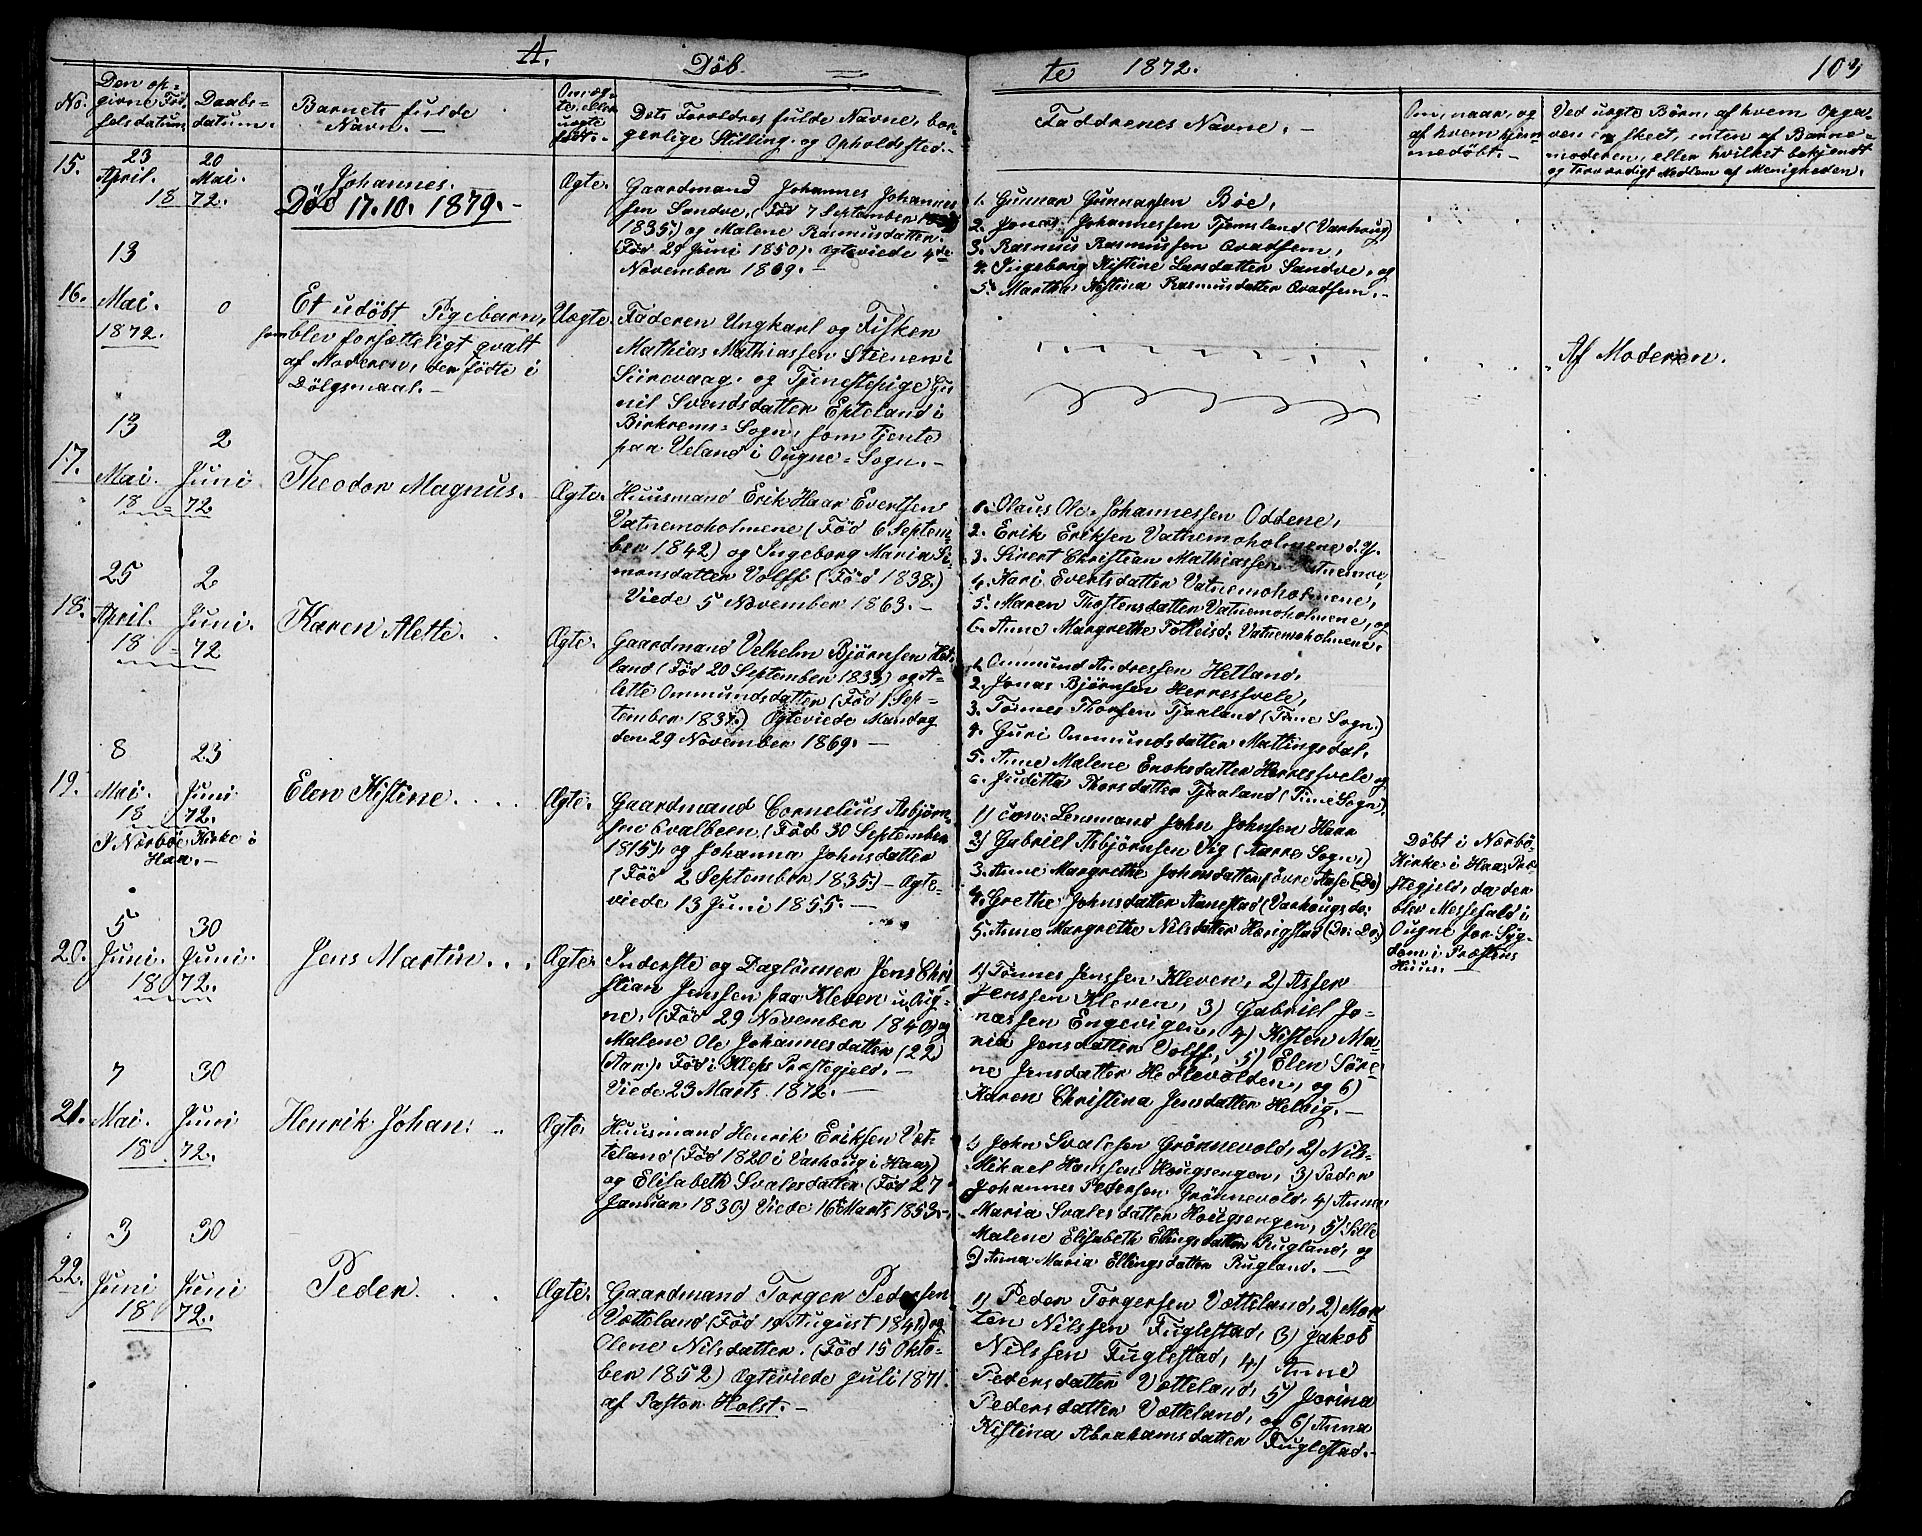 A.
Döb
te 1872.
103
No.
Den op-
givne Föd-
selsdatum
Daabs-
datum.
Barnets fulde
Navn. —
Om æg-
te, eller
uægte
født. -
Dets Foreldres fulde Navne, bor-
gerlige Stilling, og Opholdssted. -
Faddrenes Navne. -
Om, naar, og
af hvem hjem-
medöbt. -
Ved uægte Børn, af hvem Opga-
ven er skeet, enten af Barne-
moderen, eller hvilket bekjendt
og troværdigt Medlem af Menigheden.
15.
23
April.
20
Mai.
18 72.
Johannes.
Död 17.10. 1879. -
Ægte.
Gaardmand Johannes Johannes-
sen Sandve, (Föd 7 September
1835) og Malene Rasmusdatter
(Föd 29 Juni 1850). Ægteviede 4de
November 1869. -
1. Gunnar Gunnarsen Böe,
2. Jonas Johannessen Tjemsland (Varhoug)
3. Rasmus Rasmussen Qvadsem,
4. Ingeborg Kistine Larsdatter Sandve, og
5. Martha Kistina Rasmusdatter Qvadsem. -
16.
13
Mai.
1872.
0
Et udöbt Pigebarn,
som blev forsætteligt qvalt
af Moderen, der födte i
Dölgsmaal. -
Uægte.
Faderen Ungkarl og Fisker
Mathias Mathiassen Stener i
Sirevaag, og Tjenestepige Gu-
nil Svendsdatter Epteland i
Birkrems-Sogn, som tjente
paa Ueland i Ougne-Sogn. -
Af Moderen.
17.
13
Mai.
2
Juni
18 = 72
Theodor Magnus.
Ægte.
Huusmand Erik Haar Evertsen
Vatnemoholmene (Föd 6 Septem-
ber 1842) og Ingeborg Maria Si-
monsdatter Volff (Föd 1838.)
Viede 5 November 1863. -
1. Olaus Ole Johannessen Oddene,
2. Erik Eriksen Vatnemoholmene d.y.
3. Sivert Christian Mathiassen Vatnemoe,
4. Kari Evertsdatter Vatnemoholmene,
5. Maren Thostensdatter Vatnemoholmene, og
6. Anne Margrethe Tolleisd: Vatnemoholmene.
18.
25
April.
2
Juni.
18 = 72
Karen Alette.
Ægte.
Gaardmand Velhelm Björnsen Het-
land (Föd 20 September 1833) og A-
lette Ommundsdatter (Föd 1 Sep-
tember 183 ) Ægteviede Mandag
den 29 November 1869. -
1. Ommund Andressen Hetland,
2. Jonas Björnsen Herresvele,
3. Tönnes Thorsen Tjaaland (Time Sogn.)
4. Guri Ommundsdatter Mattingsdal,
5. Anne Malene Enoksdatter Herresvele og
6. Juditta Thorsdatter Tjaaland (Time Sogn).
19.
8
Mai.
23
Juni
18 72.
I Nærböe Kirke i
Haa. -
Elen Kistine. . . .
Ægte.
Gaardmand Cornelius Asbjörn-
sen Evalbern, (Föd 30 September
1815) og Johanna Johnsdatter
(Föd 2 September 1835) - Ægte-
viede 13 Juni 1855. —
1) Lensmand John Johnsen Haar
2) Gabriel Asbjörnsen Vig (Aarre Sogn,)
3. Anne Margrethe Johnsdatter övre Hase (Do)
4. Grethe Johnsdatter Aanestad (Varhougs do:
5. Anne Margrethe Nilsdatter Haugstad (Do: Do)
Döbt i Nærbö-
Kirke i Haa Præ-
stegjeld, da der
blev Messefald i
Ougne for Syg-
dom i Præstens
Huus. -
20.
5
Juni.
30
Juni.
18 72.
Jens Martin. . .
Ægte.
Inderste og Daglönner Jens Chri-
stian Jenssen paa Kleven i Oug-
ne, (Föd 29 November 1840) og
Malene Ole Johannesdatter (22
Aar). Föd i Kleps Præstegjeld. -
Viede 23 Marts 1872. -
1) Tönnes Jenssen Kleven, 2) Asser
Jenssen Kleven, 3) Gabriel Jo-
nassen Engevigen, 4) Kisten Ma-
ria Jensdatter Volff, 5) Elen Söre-
ne Jensdatter Hedlevolden, og 6)
Karen Christina Jensdatter Helvig. —
21.
7
Mai.
30
Juni
18 72.
Henrik Johan. ..
Ægte.
Huusmand Henrik Eriksen Væt-
teland (Föd 1820 i Varhoug i Haa)
og Elisabeth Svalesdatter (Föd 27
Januar 1830) Viede 16 Marts 1853. -
1) John Svalesen Grönnevold, 2) Nils
Mikael Hanssen Hougsengen, 3) Peder
Johannes Pedersen Grönnevold, 4) Anne
Maria Svalesdatter Hougsengen, 5) Sille
Malene Elisabeth Ellingsdatter Rugland, og
6) Anna Maria Ellingsdatter Rugland. —
22.
3
Juni
30
Juni
18 72.
Peder. . .
Ægte.
Gaardmand Torger Pedersen
Vætteland (Föd 19 August 1841) og
Olene Nilsdatter. (Föd 15 Okto-
ber 1852) Ægteviede Juli 1871.
af Pastor Holst. -
1) Peder Torgersen Vætteland, 2) Mor-
ten Nilssen Fuglestad, 3) Jakob
Nilssen Fuglestad, 4) Anne
Pedersdatter Vætteland, 5) Jorina
Pedersdatter Vætteland, og 6) Anna
Kistina Abrahamsdatter Fuglestad. -